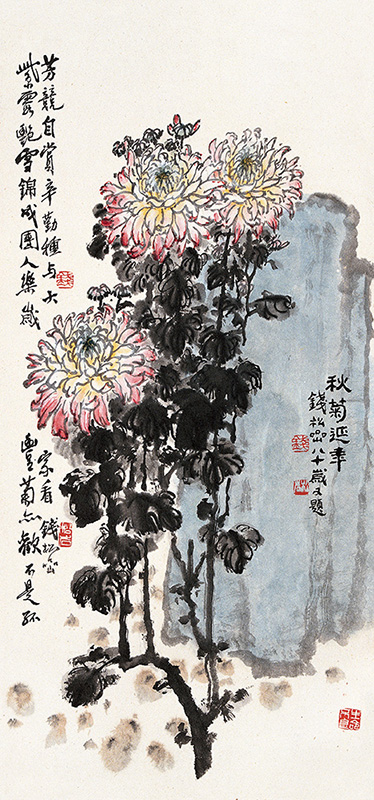 秋菊延年
錢松喦八十歲又題
紫霞艷雪錦成團人樂歲豐菊亦歡不是孤
芳競自賞辛勤種与大家看錢松喦